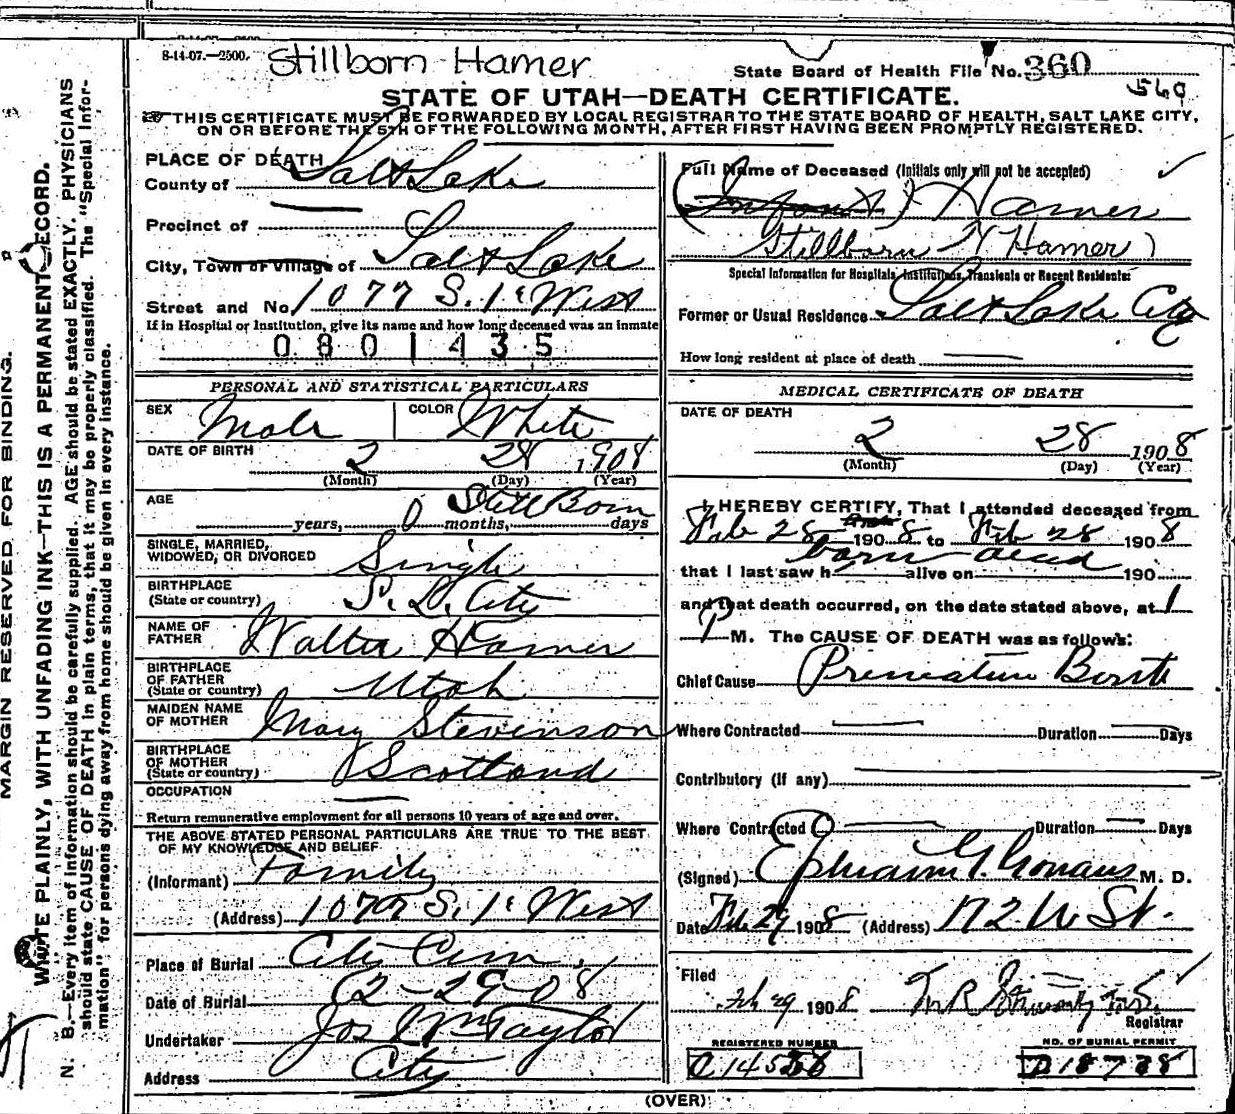 8-14-07.—2500.
Stillborn Hamer
State Board of Health File No. 360
569
STATE OF UTAH—DEATH CERTIFICATE.
THIS CERTIFICATE MUST BE FORWARDED BY LOCAL REGISTRAR TO THE STATE BOARD OF HEALTH, SALT LAKE CITY,
ON OR BEFORE THE 5TH OF THE FOLLOWING MONTH, AFTER FIRST HAVING BEEN PROMPTLY REGISTERED.
PLACE OF DEATH
County of Salt Lake
Precinct of
City, Town or Village of Salt Lake
Street and No. 1077 S. 1st West
If in Hospital or Institution, give its name and how long deceased was an inmate
0801435
PERSONAL AND STATISTICAL PARTICULARS
SEX Male COLOR White
DATE OF BIRTH 2 28 1908
(Month) (Day) (Year)
AGE Still Born
years, 0 months, days
SINGLE, MARRIED,
WIDOWED, OR DIVORCED Single
BIRTHPLACE
(State or country) S. L. City
NAME OF
FATHER Walter Hamer
BIRTHPLACE
OF FATHER
(State or country) Utah
MAIDEN NAME
OF MOTHER Mary Stevenson
BIRTHPLACE
OF MOTHER
(State or country) Scotland
OCCUPATION
Return remunerative employment for all persons 10 years of age and over.
THE ABOVE STATED PERSONAL PARTICULARS ARE TRUE TO THE BEST
OF MY KNOWLEDGE AND BELIEF
(Informant) Family
(Address) 1077 S. 1st West
Place of Burial City Cem.
Date of Burial 2-29-08
Undertaker Jos Wm Taylor
Address City
Full Name of Deceased (Initials only will not be accepted)
(Infant) Hamer
Stillborn (Hamer)
Special Information for Hospitals, Institutions, Transients or Recent Residents:
Former or Usual Residence Salt Lake City
How long resident at place of death
MEDICAL CERTIFICATE OF DEATH
DATE OF DEATH
2 28 1908
(Month) (Day) (Year)
I HEREBY CERTIFY, That I attended deceased from
Feb 28 1908 to Feb 28 1908
born dead
that I last saw h alive on 190
and that death occurred, on the date stated above, at 1
P M. The CAUSE OF DEATH was as follows:
Chief Cause Premature Birth
Where Contracted Duration Days
Contributory (if any)
Where Contracted Duration Days
(Signed) Ephraim G. Gowans M. D.
Date Feb 29 1908 (Address) 172 W St.
Filed
Feb 29 1908
Registrar
REGISTERED NUMBER
NO. OF BURIAL PERMIT
(OVER)
MARGIN RESERVED FOR BINDING.
WRITE PLAINLY, WITH UNFADING INK—THIS IS A PERMANENT RECORD.
N. B.—Every item of information should be carefully supplied. AGE should be stated EXACTLY. PHYSICIANS
should state CAUSE OF DEATH in plain terms, that it may be properly classified. The "Special Infor-
mation" for persons dying away from home should be given in every instance.